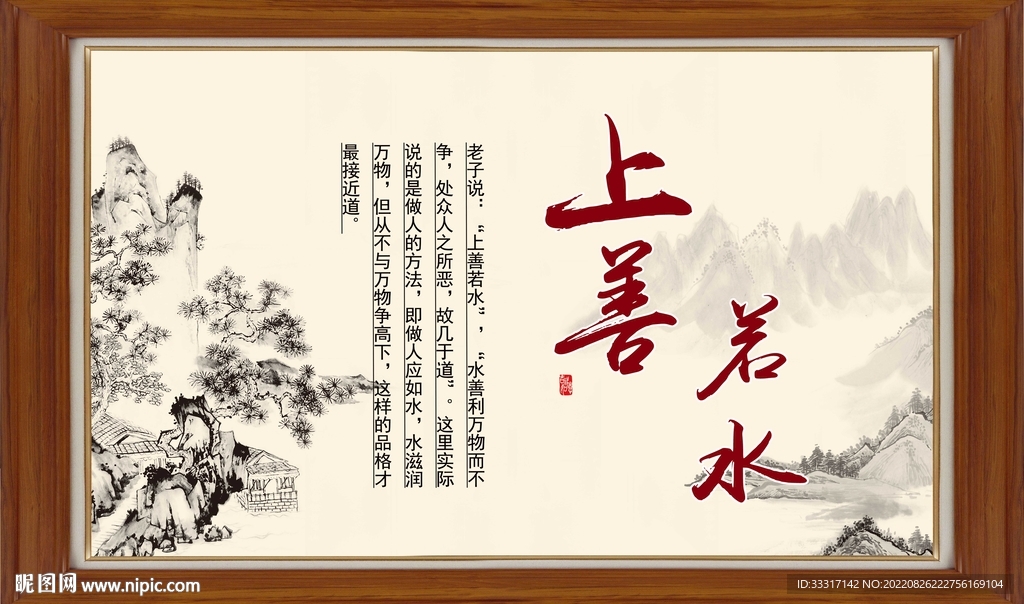 上善
若水
老子说：“上善若水”，“水善利万物而不
争，处众人之所恶，故几于道”。这里实际
说的是做人的方法，即做人应如水，水滋润
万物，但从不与万物争高下，这样的品格才
最接近道。
昵图网 www.nipic.com
ID:33317142 NO:20220826222756169104